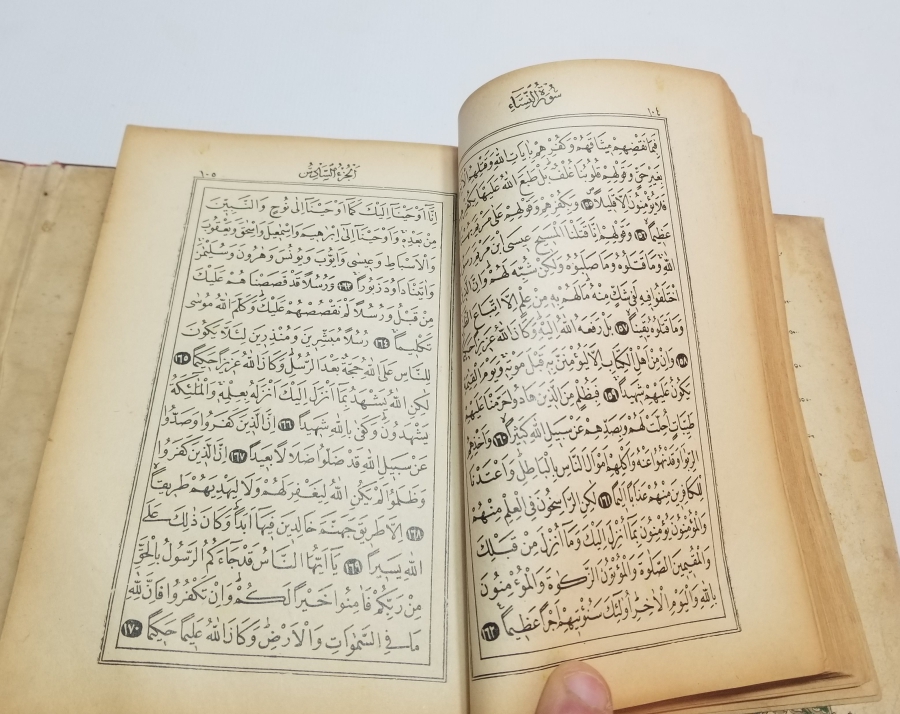 سُورَةُ النِّسَاءِ
١٠٤
فَبِمَا نَقْضِهِمْ مِيثَاقَهُمْ وَكُفْرِهِمْ بِاٰيَاتِ اللّٰهِ وَقَتْلِهِمُ
بِغَيْرِ حَقٍّ وَقَوْلِهِمْ قُلُوبُنَا غُلْفٌ بَلْ طَبَعَ اللّٰهُ عَلَيْهَا بِكُفْرِهِمْ
فَلَا يُؤْمِنُونَ اِلَّا قَلِيلًا ١٥٥ وَبِكُفْرِهِمْ وَقَوْلِهِمْ عَلٰى مَرْيَمَ
عَظِيمًا ١٥٦ وَقَوْلِهِمْ اِنَّا قَتَلْنَا الْمَسِيحَ عِيسَى ابْنَ مَرْيَمَ رَسُولَ
اللّٰهِ وَمَا قَتَلُوهُ وَمَا صَلَبُوهُ وَلٰكِنْ شُبِّهَ لَهُمْ وَاِنَّ الَّذِينَ
اخْتَلَفُوا فِيهِ لَفِي شَكٍّ مِنْهُ مَا لَهُمْ بِهِ مِنْ عِلْمٍ اِلَّا اتِّبَاعَ الظَّنِّ
وَمَا قَتَلُوهُ يَقِينًا ١٥٧ بَلْ رَفَعَهُ اللّٰهُ اِلَيْهِ وَكَانَ اللّٰهُ عَزِيزًا
١٥٨ وَاِنْ مِنْ اَهْلِ الْكِتَابِ اِلَّا لَيُؤْمِنَنَّ بِهِ قَبْلَ مَوْتِهِ وَيَوْمَ الْقِيٰمَةِ
يَكُونُ عَلَيْهِمْ شَهِيدًا ١٥٩ فَبِظُلْمٍ مِنَ الَّذِينَ هَادُوا حَرَّمْنَا عَلَيْهِمْ
طَيِّبَاتٍ اُحِلَّتْ لَهُمْ وَبِصَدِّهِمْ عَنْ سَبِيلِ اللّٰهِ كَثِيرًا ١٦٠ وَاَخْذِهِمُ
الرِّبٰوا وَقَدْ نُهُوا عَنْهُ وَاَكْلِهِمْ اَمْوَالَ النَّاسِ بِالْبَاطِلِ وَاَعْتَدْنَا
لِلْكَافِرِينَ مِنْهُمْ عَذَابًا اَلِيمًا ١٦١ لٰكِنِ الرَّاسِخُونَ فِي الْعِلْمِ مِنْهُمْ
وَالْمُؤْمِنُونَ يُؤْمِنُونَ بِمَا اُنْزِلَ اِلَيْكَ وَمَا اُنْزِلَ مِنْ قَبْلِكَ
وَالْمُقِيمِينَ الصَّلٰوةَ وَالْمُؤْتُونَ الزَّكٰوةَ وَالْمُؤْمِنُونَ
بِاللّٰهِ وَالْيَوْمِ الْاٰخِرِ اُولٰئِكَ سَنُؤْتِيهِمْ اَجْرًا عَظِيمًا ١٦٢
اَلْجُزْءُ السَّادِسُ
١٠٥
اِنَّا اَوْحَيْنَا اِلَيْكَ كَمَا اَوْحَيْنَا اِلٰى نُوحٍ وَالنَّبِيِّنَ
مِنْ بَعْدِهِ وَاَوْحَيْنَا اِلٰى اِبْرٰهِيمَ وَاِسْمٰعِيلَ وَاِسْحٰقَ وَيَعْقُوبَ
وَالْاَسْبَاطِ وَعِيسٰى وَاَيُّوبَ وَيُونُسَ وَهٰرُونَ وَسُلَيْمٰنَ
وَاٰتَيْنَا دَاوُدَ زَبُورًا ١٦٣ وَرُسُلًا قَدْ قَصَصْنَاهُمْ عَلَيْكَ
مِنْ قَبْلُ وَرُسُلًا لَمْ نَقْصُصْهُمْ عَلَيْكَ وَكَلَّمَ اللّٰهُ مُوسٰى
تَكْلِيمًا ١٦٤ رُسُلًا مُبَشِّرِينَ وَمُنْذِرِينَ لِئَلَّا يَكُونَ
لِلنَّاسِ عَلَى اللّٰهِ حُجَّةٌ بَعْدَ الرُّسُلِ وَكَانَ اللّٰهُ عَزِيزًا حَكِيمًا ١٦٥
لٰكِنِ اللّٰهُ يَشْهَدُ بِمَا اَنْزَلَ اِلَيْكَ اَنْزَلَهُ بِعِلْمِهِ وَالْمَلٰئِكَةُ
يَشْهَدُونَ وَكَفٰى بِاللّٰهِ شَهِيدًا ١٦٦ اِنَّ الَّذِينَ كَفَرُوا وَصَدُّوا
عَنْ سَبِيلِ اللّٰهِ قَدْ ضَلُّوا ضَلَالًا بَعِيدًا ١٦٧ اِنَّ الَّذِينَ كَفَرُوا
وَظَلَمُوا لَمْ يَكُنِ اللّٰهُ لِيَغْفِرَ لَهُمْ وَلَا لِيَهْدِيَهُمْ طَرِيقًا
١٦٨ اِلَّا طَرِيقَ جَهَنَّمَ خَالِدِينَ فِيهَا اَبَدًا وَكَانَ ذٰلِكَ عَلَى
اللّٰهِ يَسِيرًا ١٦٩ يَا اَيُّهَا النَّاسُ قَدْ جَاءَكُمُ الرَّسُولُ بِالْحَقِّ
مِنْ رَبِّكُمْ فَاٰمِنُوا خَيْرًا لَكُمْ وَاِنْ تَكْفُرُوا فَاِنَّ لِلّٰهِ
مَا فِي السَّمٰوَاتِ وَالْاَرْضِ وَكَانَ اللّٰهُ عَلِيمًا حَكِيمًا ١٧٠